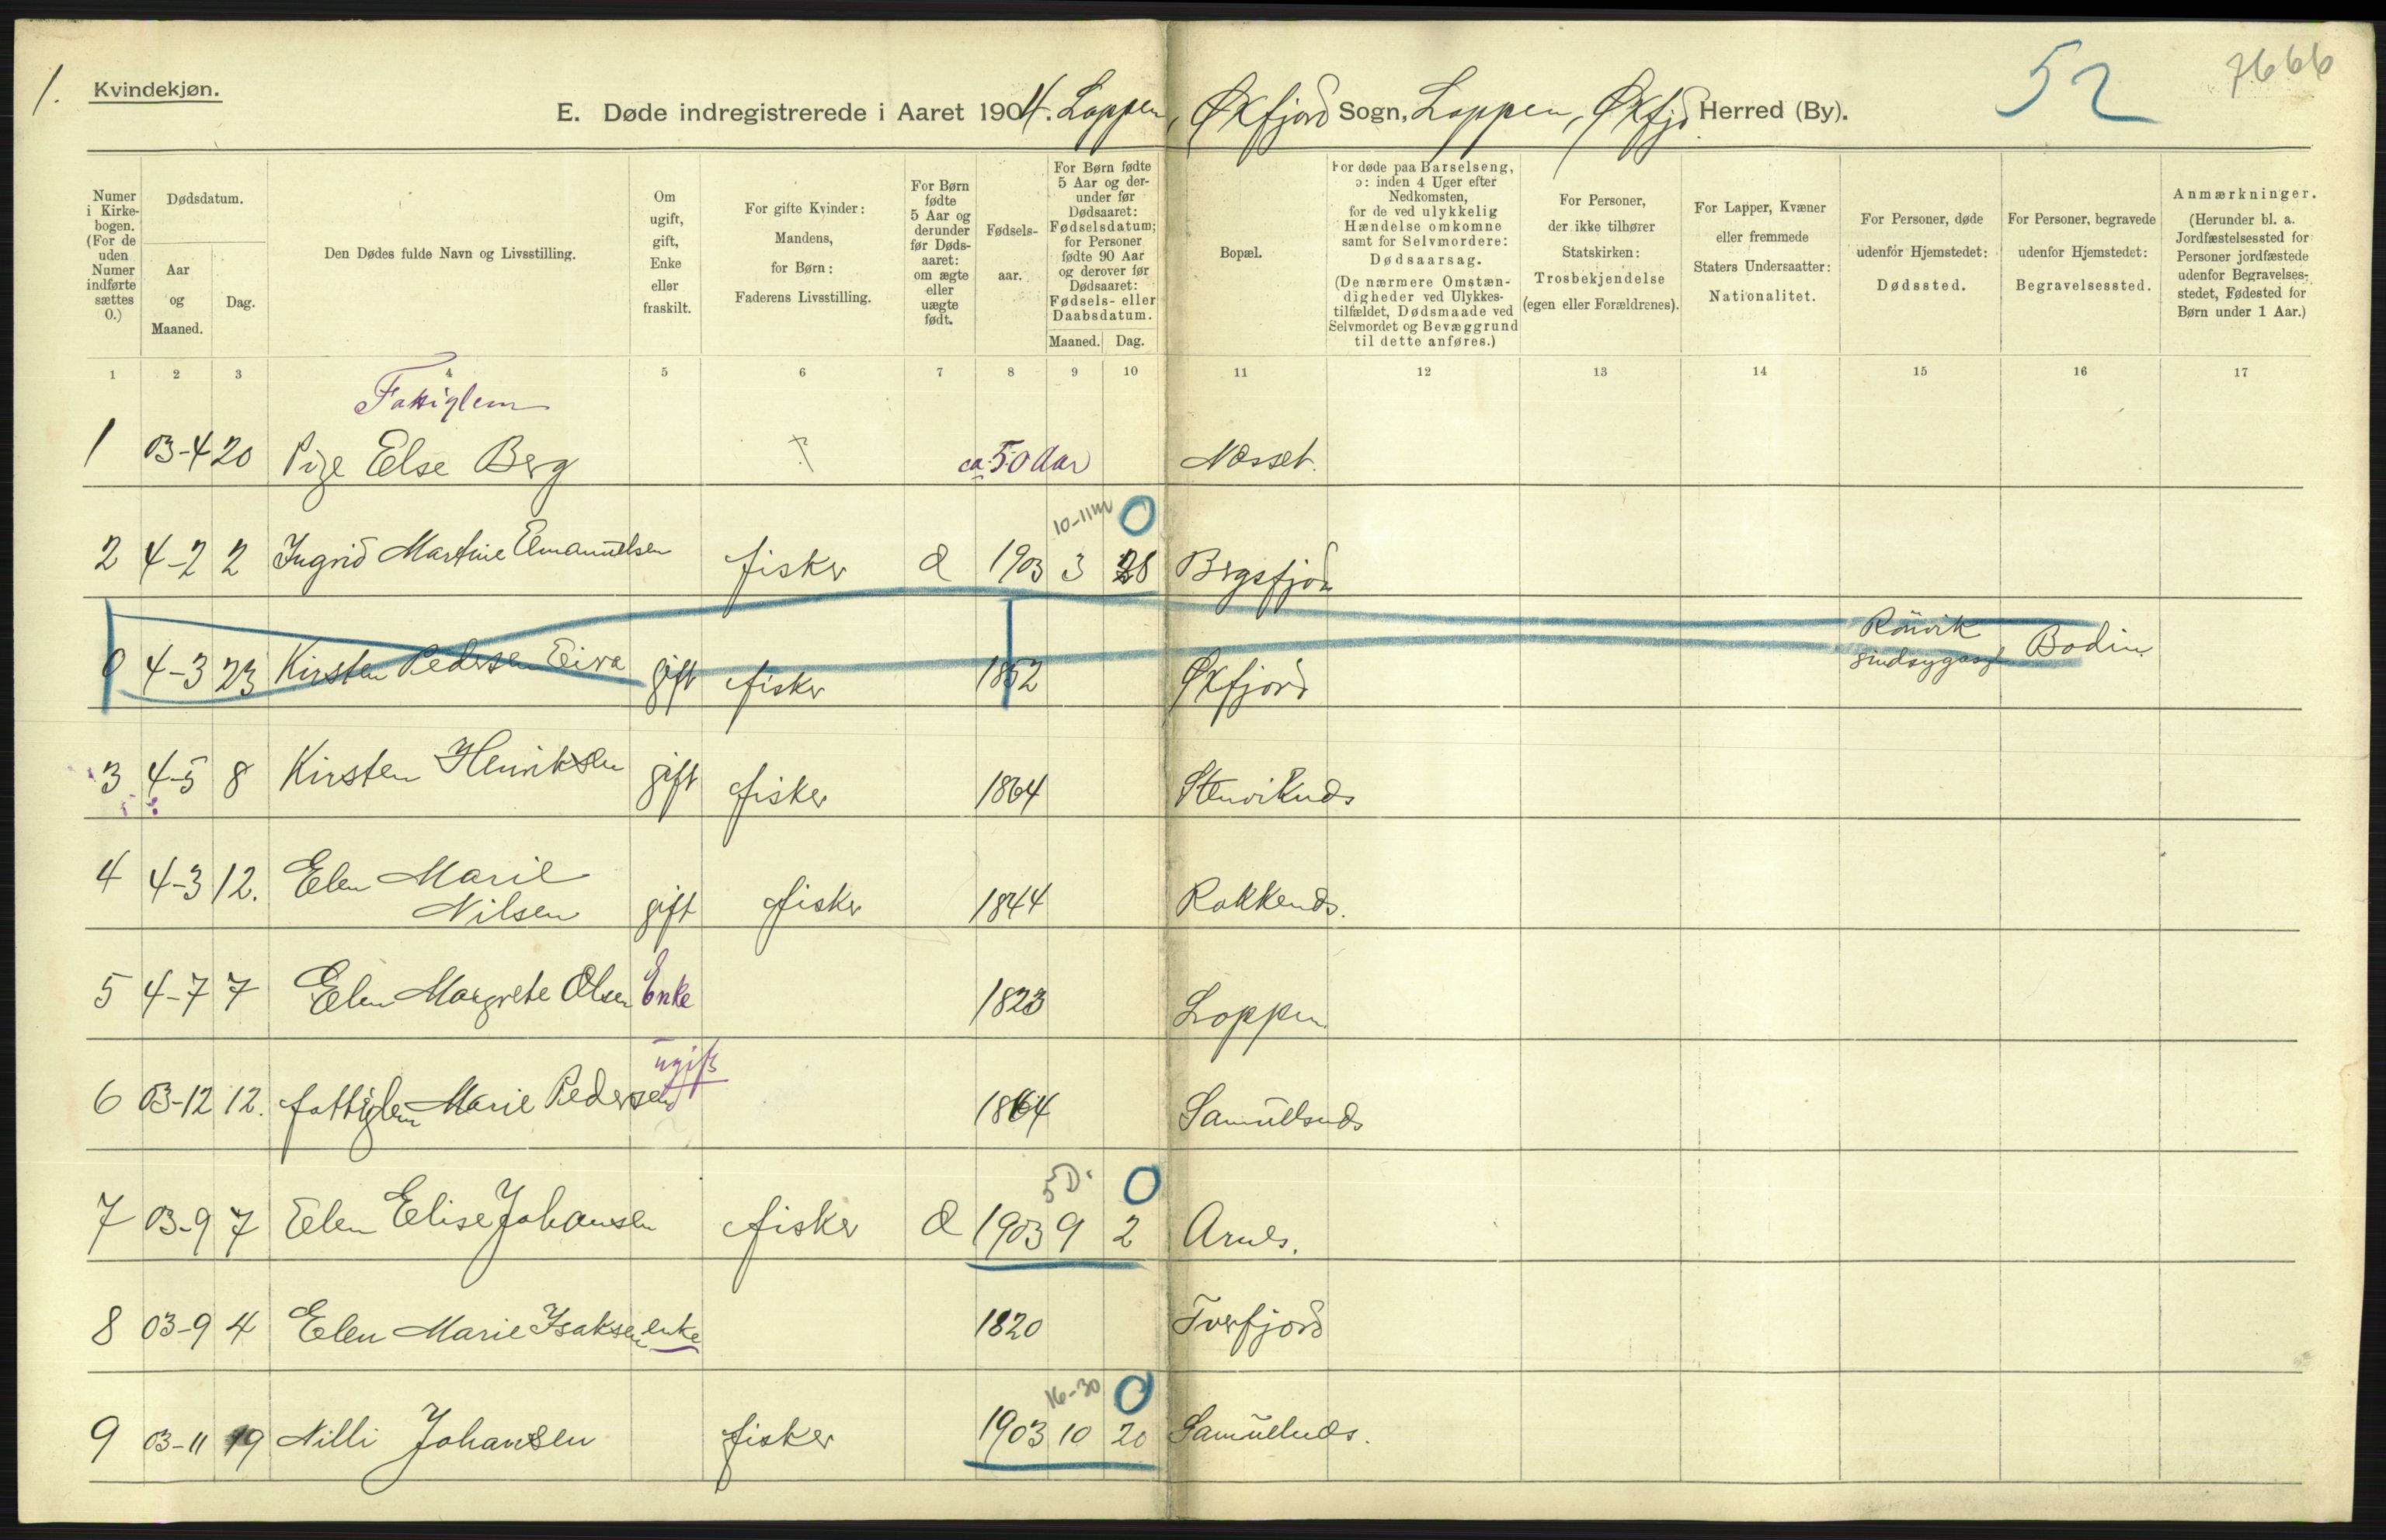 1.
Kvindekjøn.
E. Døde indregistrerede i Aaret 1904. Loppen, Øxfjord Sogn, Loppen, Øxfjd Herred (By).
52
7666
Numer i Kirke-bogen. (For de uden Numer indførte sættes 0.)
Dødsdatum.
Aar og Maaned.
Dag.
Den Dødes fulde Navn og Livsstilling.
Om ugift, gift, Enke eller fraskilt.
For gifte Kvinder: Mandens, for Børn: Faderens Livsstilling.
For Børn fødte 5 Aar og derunder før Døds-aaret: om ægte eller uægte født.
Fødsels-aar.
For Børn fødte 5 Aar og der-under før Dødsaaret: Fødselsdatum; for Personer fødte 90 Aar og derover før Dødsaaret: Fødsels- eller Daabsdatum.
Maaned. Dag.
Bopæl.
For døde paa Barselseng, ɔ: inden 4 Uger efter Nedkomsten, for de ved ulykkelig Hændelse omkomne samt for Selvmordere: Dødsaarsag.
(De nærmere Omstæn-digheder ved Ulykkes-tilfældet, Dødsmaade ved Selvmordet og Bevæggrund til dette anføres.)
For Personer, der ikke tilhører Statskirken: Trosbekjendelse (egen eller Forældrenes).
For Lapper, Kvæner eller fremmede Staters Undersaatter: Nationalitet.
For Personer, døde udenfor Hjemstedet: Dødssted.
For Personer, begravede udenfor Hjemstedet: Begravelsessted.
Anmærkninger. (Herunder bl. a. Jordfæstelsessted for Personer jordfæstede udenfor Begravelses-stedet, Fødested for Børn under 1 Aar.)
1 2 3 4 5 6 7 8 9 10 11 12 13 14 15 16 17
Fattiglem
1 03-4 20 Pige Else Berg ? ca. 50 Aar Næsset.
10-11 m 0
2 4-2 2 Ingrid Martine Emanuelsen fisker Æ 1903 3 28 Bergsfjord
0 4-3 23 Kirsten Pedersen Eira gift fisker 1852 Øxfjord Rönvik sindsygeasyl Bodin
3 4-5 8 Kirsten Henriksen gift fisker 1864
4 4-3 12. Elen Marie Nilsen gift fisker 1844
5 4-7 7 Elen Margrete Olsen Enke 1823 Loppen
ugift
6 03-12 12. fattiglem Marie Pedersen 1864
5 D. 0
7 03-9 7 Elen Elise Johansen fisker Æ 1903 9 2
8 03-9 4 Elen Marie Isaksen enke 1820 Tverfjord
16-30 0
9 03-11 19 Nilli Johansen fisker 1903 10 20